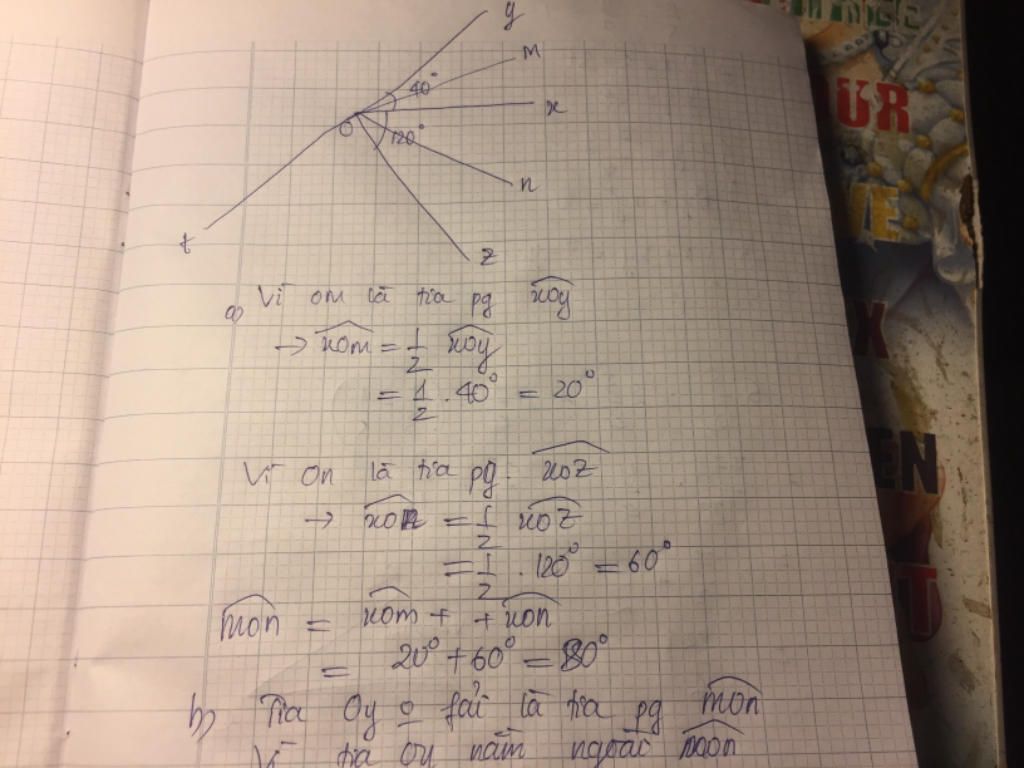 y
m
40°
x
O
120°
n
t
z
a) Vì om là tia pg xoy
→ xom = 1/2 xoy
= 1/2 . 40° = 20°
Vì On là tia pg. xoz
→ xon = 1/2 xoz
= 1/2 . 120° = 60°
mon = xom + + xon
= 20° + 60° = 80°
b) Tia Oy o fải là tia pg mon
Vì tia oy nằm ngoài mon